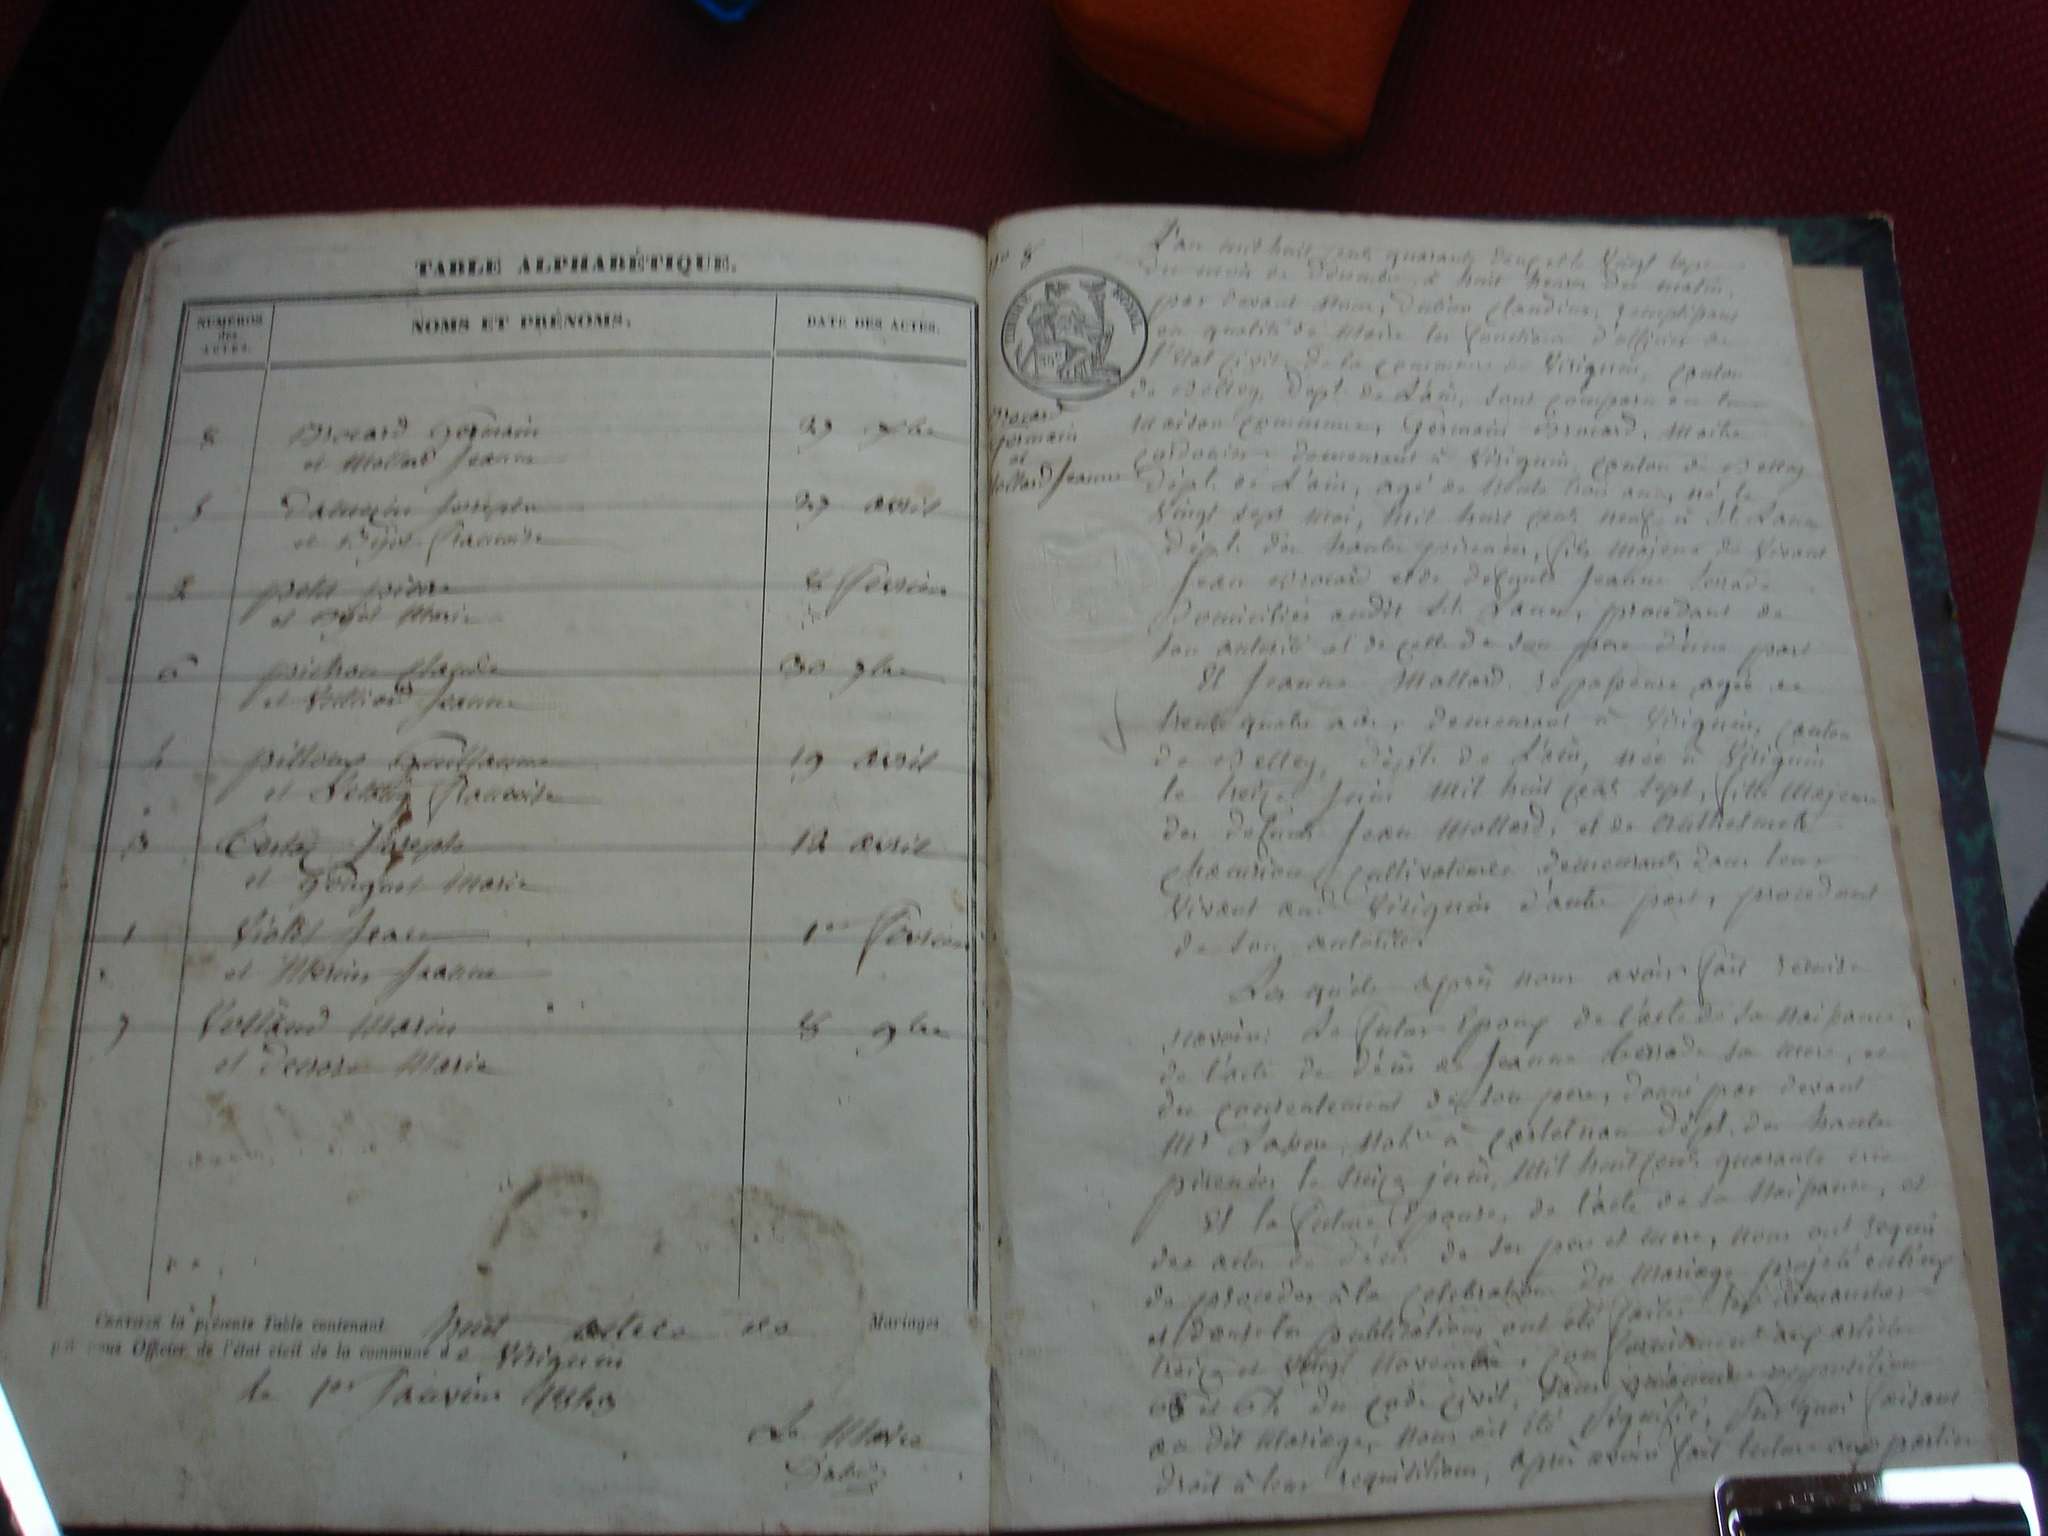 TABLE ALPHABÉTIQUE.
NUMÉROS
des
ACTES.
NOMS ET PRÉNOMS.
DATE DES ACTES.
8 Brocard Germain 27 Xbre
et Mollard Jeanne
5 Joseph 27 avril
et Françoise
2 petit pierre 8 février
et Marie
6 pichon Claude 30 9bre
et Jeanne
4 Guillaume 19 avril
et Françoise
3 Joseph 12 avril
et Gouguet Marie
1 Violet Jean 1er février
et Jeanne
7 Volland Marin 8 9bre
et Marie
CERTIFIÉE la présente Table contenant huit actes de Mariages
par nous Officier de l'état civil de la commune de Virignin
le 1er Janvier 1843
Le Maire
N° 8
TIMBRE ROYAL
Brocard
Germain
et
Mollard Jeanne
L'an mil huit cent quarante deux et le vingt sept
du mois de Décembre, à huit heures du matin,
par devant Nous, Claudius, remplissant
en qualité de Maire les fonctions d'officier de
l'État civil de la commune de Virignin, canton
de Belley, Dépt. de L'ain, sont comparu en la
Maison commune, Germain Brocard, Maître
cordonnier demeurant à Virignin, canton de Belley
Dépt. de L'ain, agé de trente trois ans, né le
vingt sept Mai, Mil huit cent neuf, à St. Lanne
Dépt. des hautes pirenées, fils Majeur de vivant
Jean Brocard et de défunte Jeanne
Domiciliés audit St. Lanne, procédant de
son autorité et de celle de son père d'une part
Et Jeanne Mollard, repasseuse, agée de
trente quatre ans, demeurant à Virignin, canton
de Belley, dépt. de L'ain, née à Virignin
le treize Juin Mil huit cent sept, fille Majeure
des défunts Jean Mollard, et de Anthelmette
cultivateurs demeurants dans leur
vivant aud. Virignin d'autre part, procédant
de son autorité.
Lesquels après nous avoir fait remise
savoir: Le futur Époux de l'acte de sa Naissance,
de l'acte de décès de Jeanne sa mère, et
du consentement de son père, donné par devant
Mr Notre à Castelnau Dépt. des hautes
pirenées le treize juin, Mil huit cent quarante
Et la future Épouse, de l'acte de sa Naissance, et
des actes de décès de ses père et mère, nous ont requis
de procéder à la célébration du Mariage projeté entr'eux
et dont les publications ont été faites les dimanches
treize et vingt Novembre, conformément aux articles
63 et 64 du code civil, sans qu'aucune opposition
au dit Mariage, Nous ait été signifié, sur quoi faisant
droit à leur réquisition, après avoir fait lecture aux parties